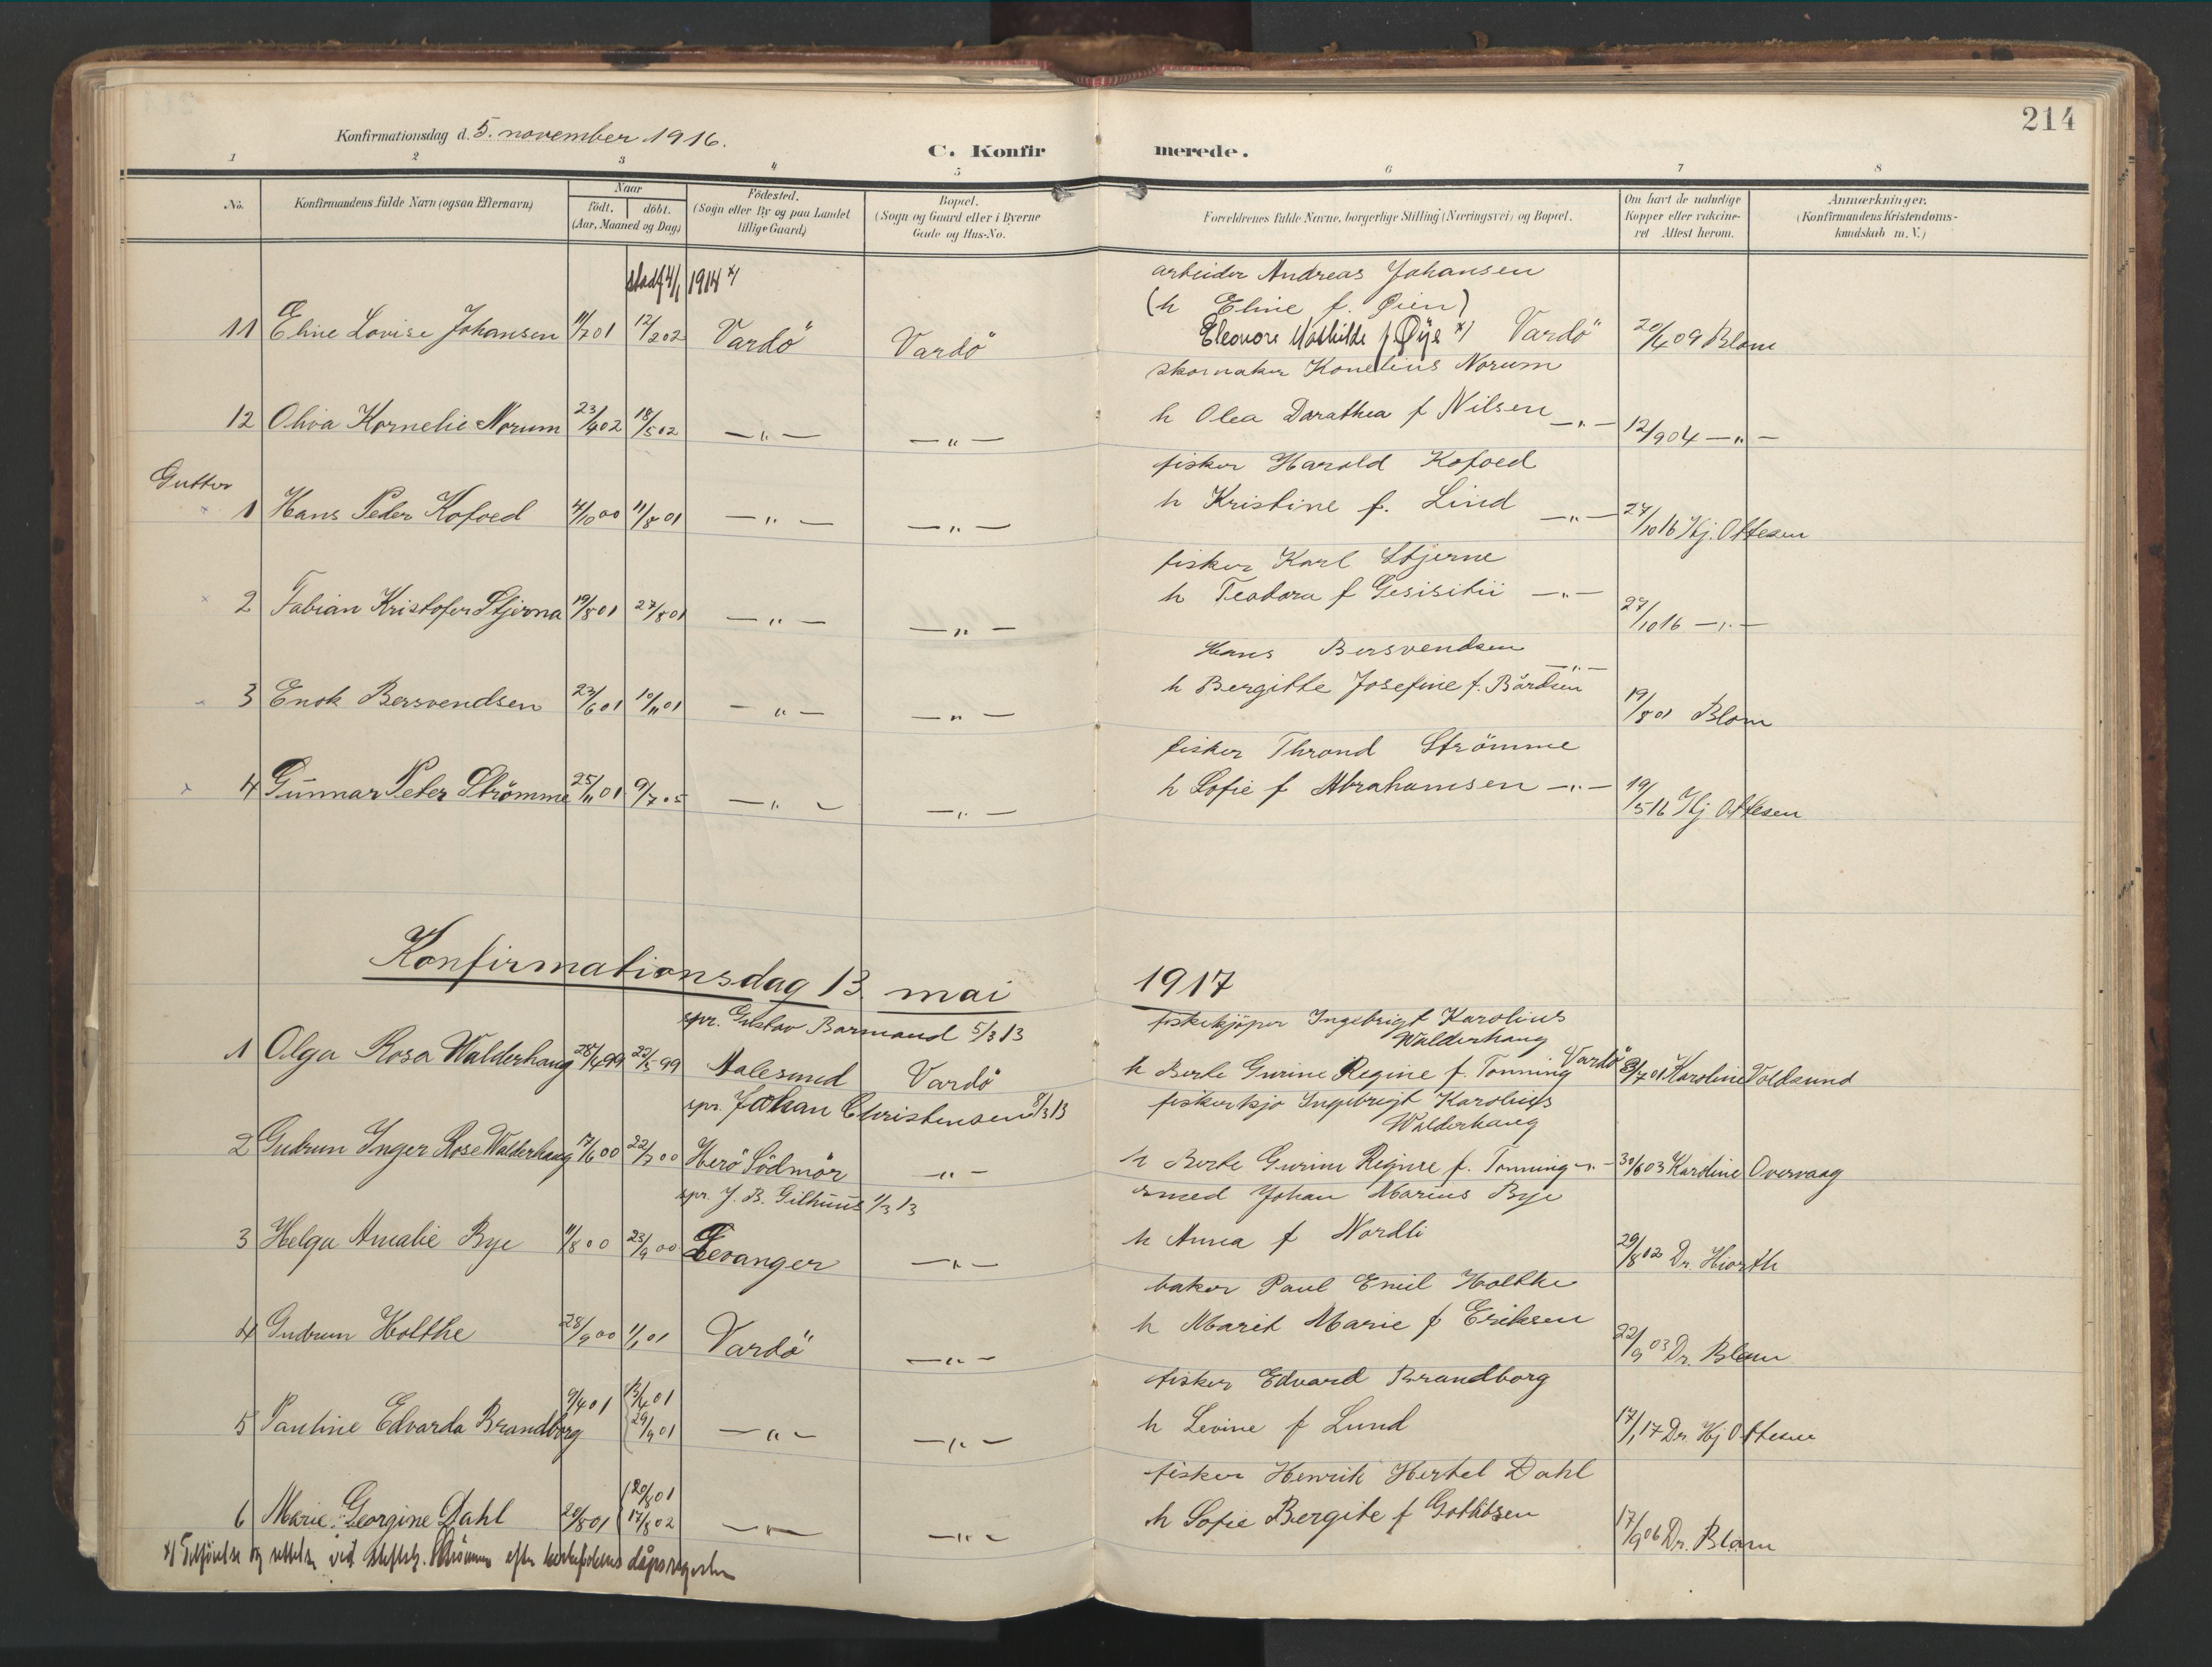 214
Konfirmationsdag d. 5. november 1916.
C. Konfirmerede.
1 2 3 4 5 6 7 8
No.
Konfirmandens fulde Navn (ogsaa Efternavn)
Naar
födt. döbt.
(Aar, Maaned og Dag)
Födested.
(Sogn eller By og paa Landet
tillige Gaard)
Bopæl.
(Sogn og Gaard eller i Byerne
Gade og Hus-No.
Forældrenes fulde Navne, borgerlige Stilling (Næringsvei) og Bopæl.
Om havt de naturlige
Kopper eller vakcine-
ret Attest herom.
Anmærkninger.
(Konfirmandens Kristendoms-
kundskab m. V.)
stadf 4/1 1914 x)
arbeider Andreas Johansen
(h Eline f. Øien)
11 Eline Lovise Johansen 11/7 01 12/2 02 Vardö Vardö Eleonore Mathilde f Øye x) Vardö 20/4 09 Blom
skomaker Konelius Norum
12 Oliva Kornelie Norum 23/4 02 18/5 02 —"— —"— h Olea Darathea f Nilsen —"— 12/9 04 —"—
Gutter
fisker Harald Kofoed
x 1 Hans Peder Kofoed 4/10 00 11/8 01 —"— —"— h Kristine f. Lind —"— 27/10 16 Hj. Ottesen
fisker Karl Stjerne
x 2 Fabian Kristofer Stjerna 19/8 01 27/8 01 —"— —"— h Teodora f —"— 27/10 16 —"—
Hans Bersvendsen
3 Enok Bersvendsen 23/6 01 10/11 01 —"— —"— h Bergitte Josefine f. Bårdsen —"— 19/8 01 Blom
fisker Thrond Strömme
x 4 Gunnar Peter Strömme 25/11 01 9/7 05 —"— —"— h Sofie f Abrahamsen —"— 19/5 16 Hj Ottesen
Konfirmationsdag 13. mai 1917
spr. Gustav Barmand 5/3 13
fiskekjöper Ingebrigt Karolius
Walderhaug
1 Olga Rosa Walderhaug 28/4 99 22/5 99 Aalesund Vardö h Berte Gurine Regine f. Tonning Vardö 23/7 01 Karoline Voldsund
spr. Johan Christensen 8/3 13
fiskerkjö Ingebrigt Karolius
Walderhaug
2 Gudrun Inger Rose Walderhaug 17/6 00 22/7 00 Herö Södmör —"— h Berte Gurine Regine f. Tonning —"— 30/6 03 Karoline Overvaag
spr. J. B. Gilhuus 1/3 13
smed Johan Marius Bye
3 Helga Amalie Bye 11/8 00 23/9 00 Levanger —"— h Anna f Nordli 29/8 02 Dr. Hiorth
baker Paul Emil Holthe
4 Gudrun Holthe 28/9 00 1/1 01 Vardö —"— h Marit Marie f Eriksen 22/9 03 Dr. Blom
fisker Edvard Brandborg
5 Pauline Edvarda Brandborg 9/4 01 13/4 01 (29/9 01 —"— —"— h Levine f Lund 17/1 17 Dr. Hj Ottesen
fisker Henrik Hertel Dahl
6 Marie Georgine Dahl 20/8 01 (20/8 01 (17/8 02 —"— —"— h Sofie Bergite f Gottlibsen 17/9 06 Dr. Blom
x) Tilföielse og rettelse ved Strömme efter kirkebokens dåpsregister